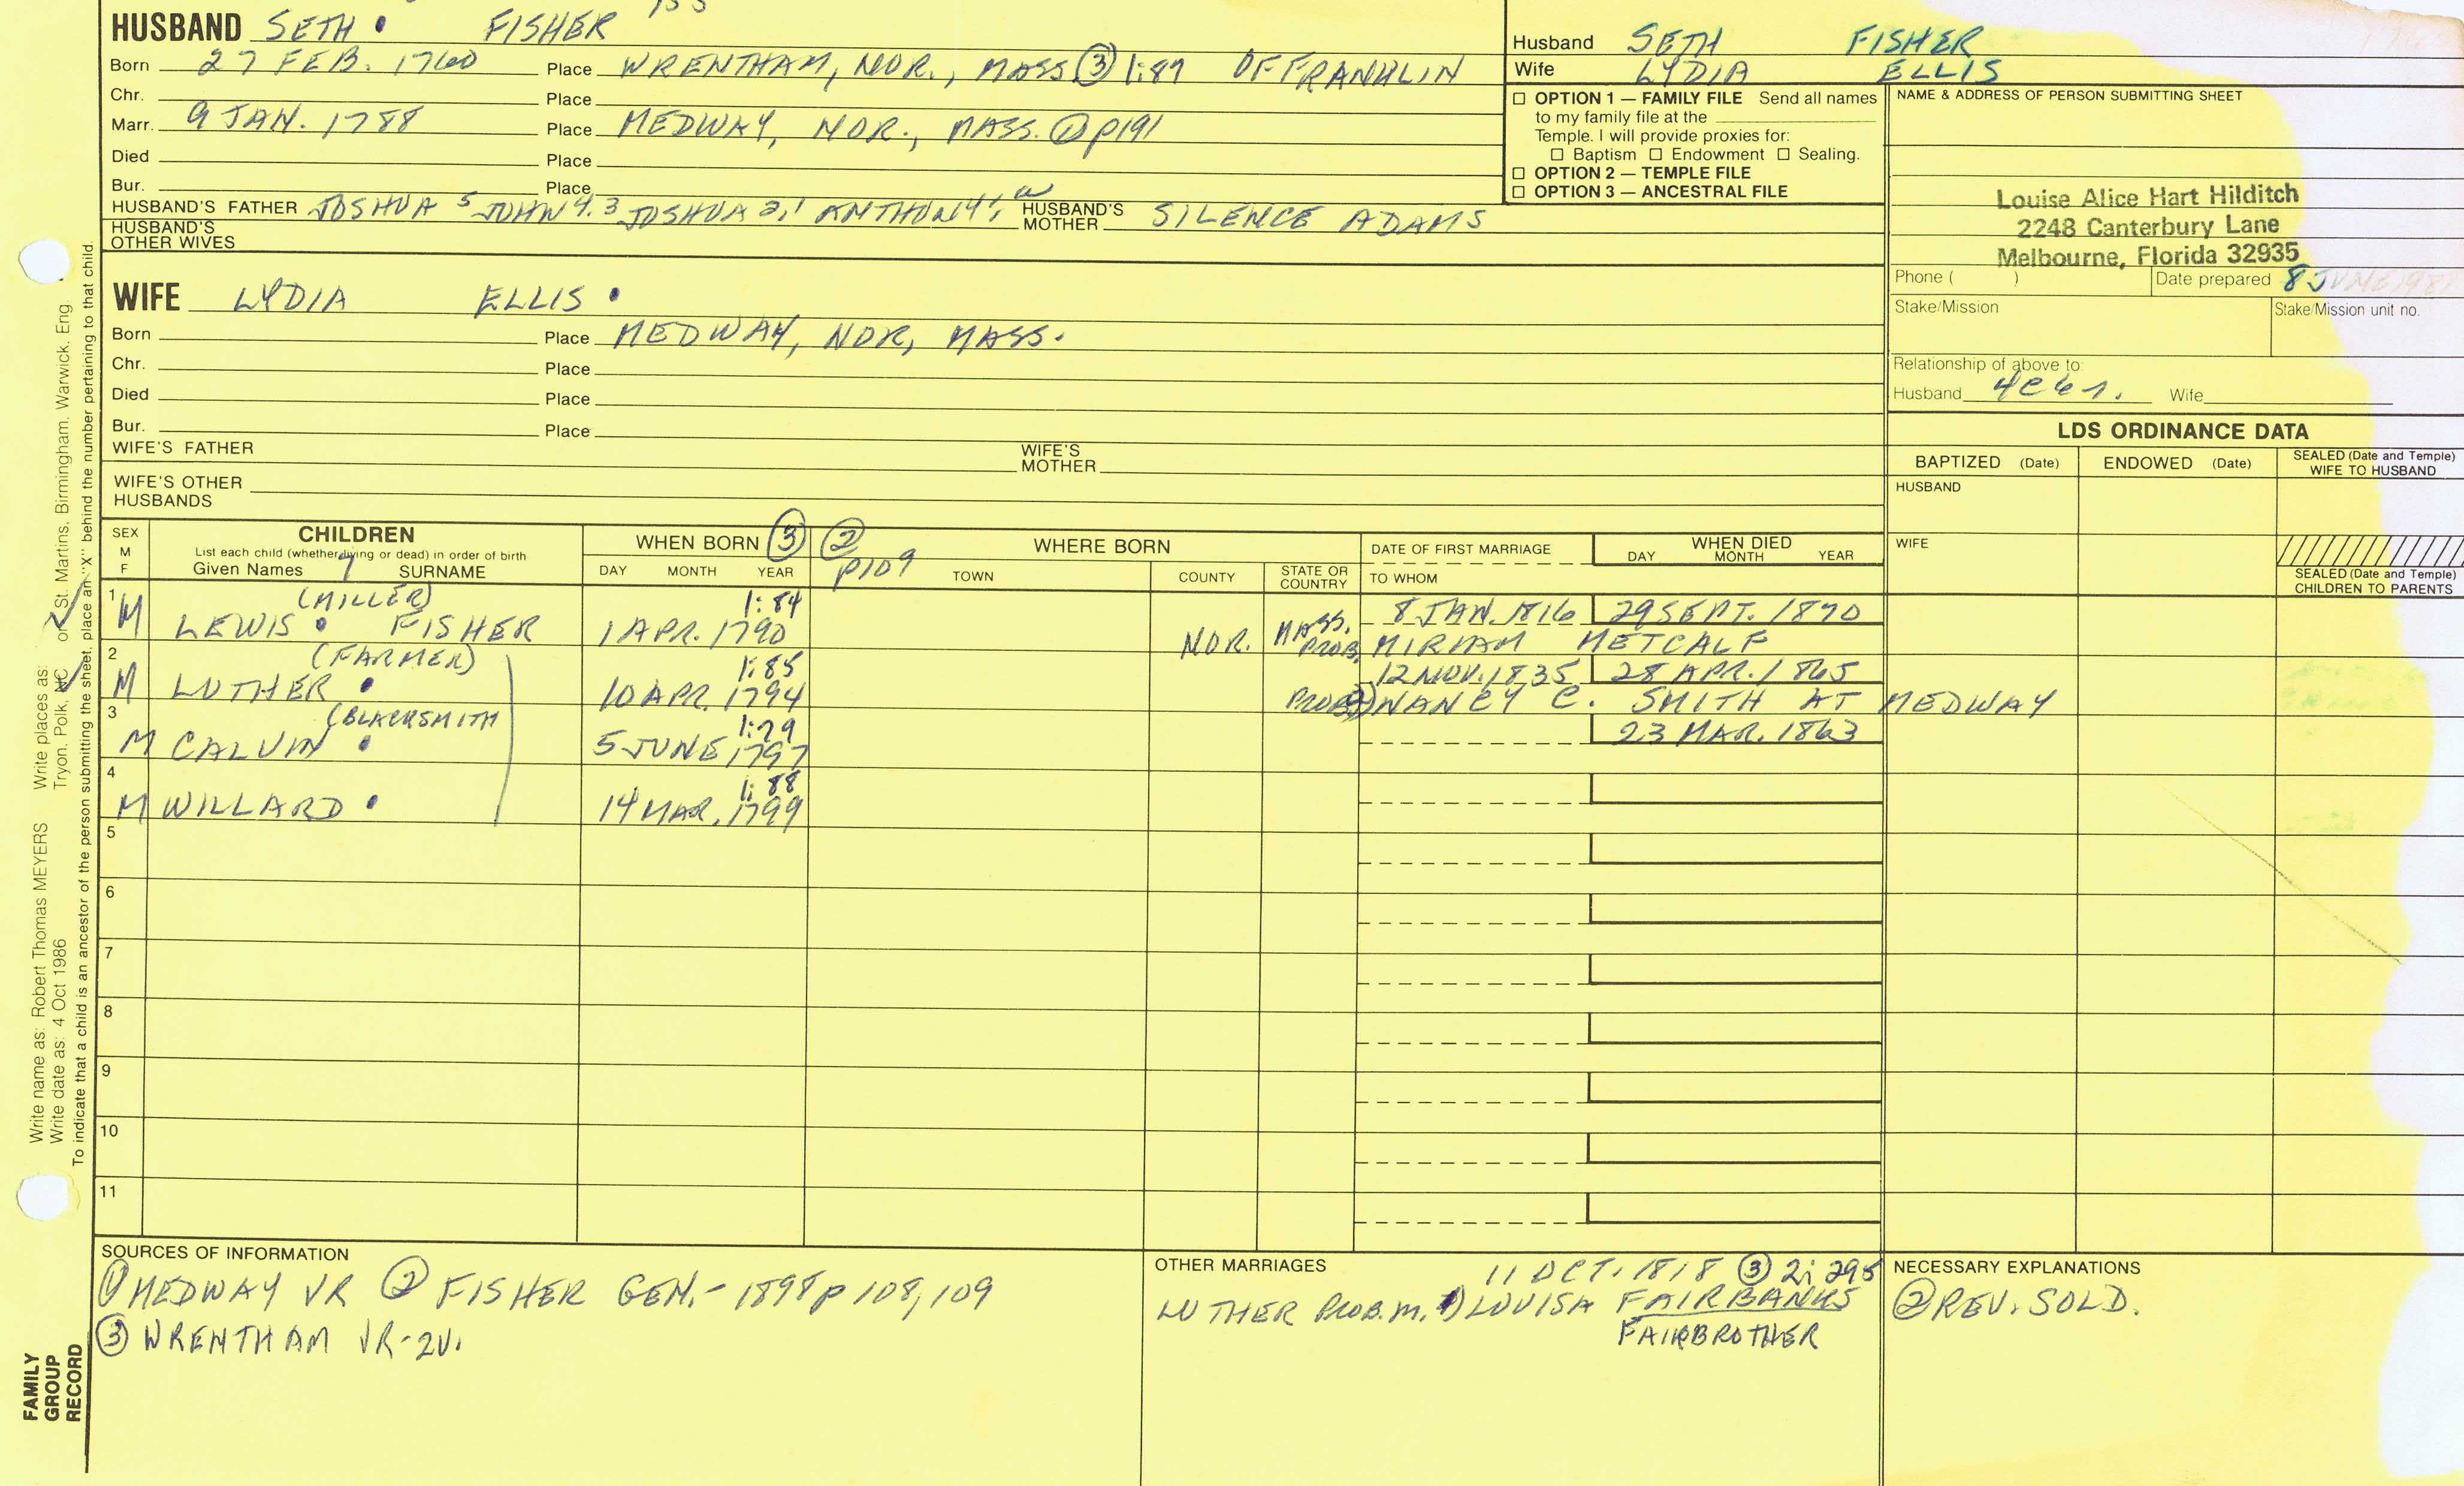 HUSBAND SETH • FISHER
Born 27 FEB. 1760 Place WRENTHAM, NOR., MASS ③ 1:87 OF FRANKLIN
Chr. Place
Marr. 9 JAN. 1788 Place MEDWAY, NOR., MASS. ① P191
Died Place
Bur. Place
HUSBAND'S FATHER JOSHUA 5 JOHN 4,3 JOSHUA 2,1 ANTHONY HUSBAND'S MOTHER SILENCE ADAMS
HUSBAND'S OTHER WIVES
WIFE LYDIA ELLIS •
Born Place MEDWAY, NOR, MASS.
Chr. Place
Died Place
Bur. Place
WIFE'S FATHER WIFE'S MOTHER
WIFE'S OTHER HUSBANDS
Husband SETH FISHER
Wife LYDIA ELLIS
☐ OPTION 1 — FAMILY FILE Send all names
to my family file at the
Temple. I will provide proxies for:
☐ Baptism ☐ Endowment ☐ Sealing.
☐ OPTION 2 — TEMPLE FILE
☐ OPTION 3 — ANCESTRAL FILE
NAME & ADDRESS OF PERSON SUBMITTING SHEET
Louise Alice Hart Hilditch
2248 Canterbury Lane
Melbourne, Florida 32935
Phone ( ) Date prepared 8 JUNE
Stake/Mission Stake/Mission unit no.
Relationship of above to:
Husband Wife
LDS ORDINANCE DATA
BAPTIZED (Date) ENDOWED (Date) SEALED (Date and Temple) WIFE TO HUSBAND
HUSBAND
WIFE
SEALED (Date and Temple)
CHILDREN TO PARENTS
SEX M F CHILDREN WHEN BORN ③ ② P109 WHERE BORN DATE OF FIRST MARRIAGE WHEN DIED
List each child (whether living or dead) in order of birth
Given Names SURNAME DAY MONTH YEAR TOWN COUNTY STATE OR COUNTRY TO WHOM DAY MONTH YEAR
1 (MILLER) 1:84 8 JAN. 1816 29 SEPT. 1870
M LEWIS • FISHER 1 APR. 1790 NOR. MASS. PROB. MIRIAM METCALF
2 (FARMER) 1:85 12 NOV. 1835 28 APR. 1865
M LUTHER • 10 APR. 1794 PROB. 2) NANCY C. SMITH AT MEDWAY
3 (BLACKSMITH 1:79 23 MAR. 1863
M CALVIN • 5 JUNE 1797
4 1:88
M WILLARD • 14 MAR. 1799
5
6
7
8
9
10
11
SOURCES OF INFORMATION
① MEDWAY VR ② FISHER GEN.- 1898 P 108, 109
③ WRENTHAM VR-2V.
OTHER MARRIAGES 11 OCT. 1818 ③ 2:295
LUTHER PROB. M. 1) LOUISA FAIRBANKS
FAIRBROTHER
NECESSARY EXPLANATIONS
② REV. SOLD.
Write name as: Robert Thomas MEYERS Write places as: Tryon, Polk, NC or St. Martins, Birmingham, Warwick, Eng
Write date as: 4 Oct 1986
To indicate that a child is an ancestor of the person submitting the sheet, place an "X" behind the number pertaining to that child.
FAMILY
GROUP
RECORD